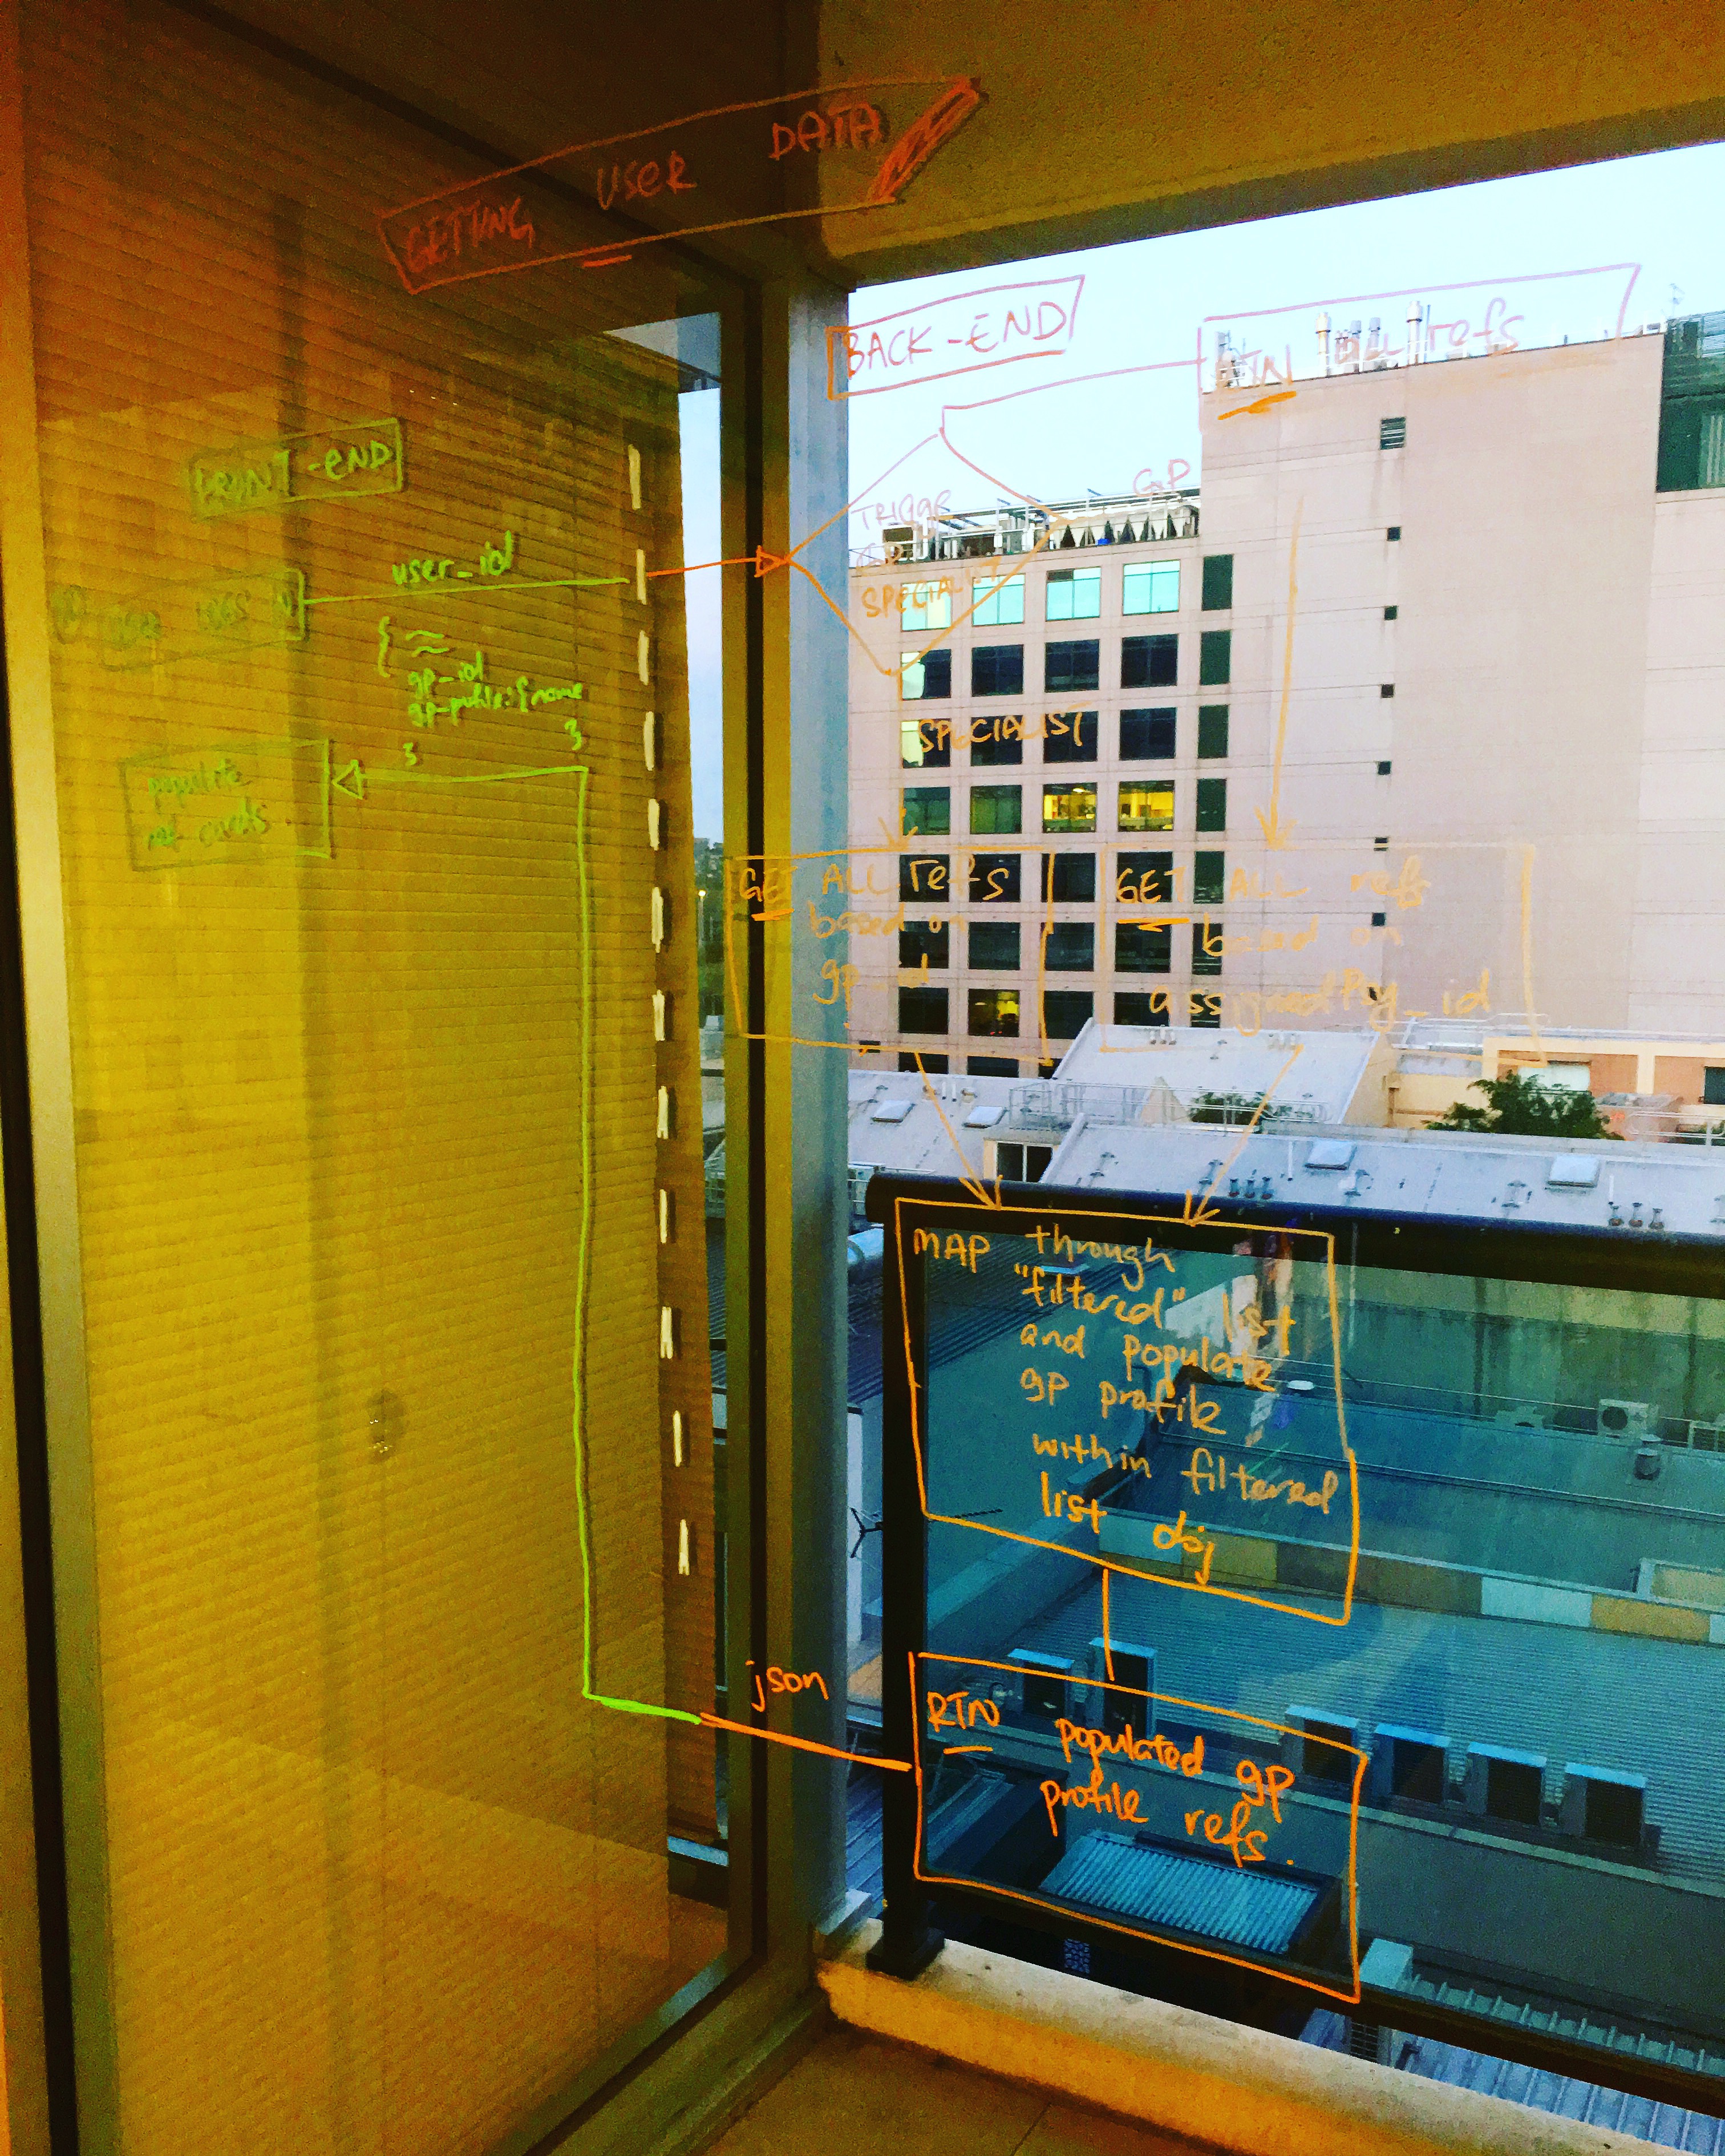 GETTING USER DATA
BACK-END
RTN ALL refs
FRONT-END
USER LOGS IN
user_id
{
gp_id
gp-profile: {name
}
}
populate
ref cards
GP
SPECIALIST
SPECIALIST
GET ALL refs
based on
gp_id
GET ALL refs
based on
assignedPsy_id
MAP through
"filtered" list
and populate
gp profile
within filtered
list obj
json
RTN populated gp
profile refs.